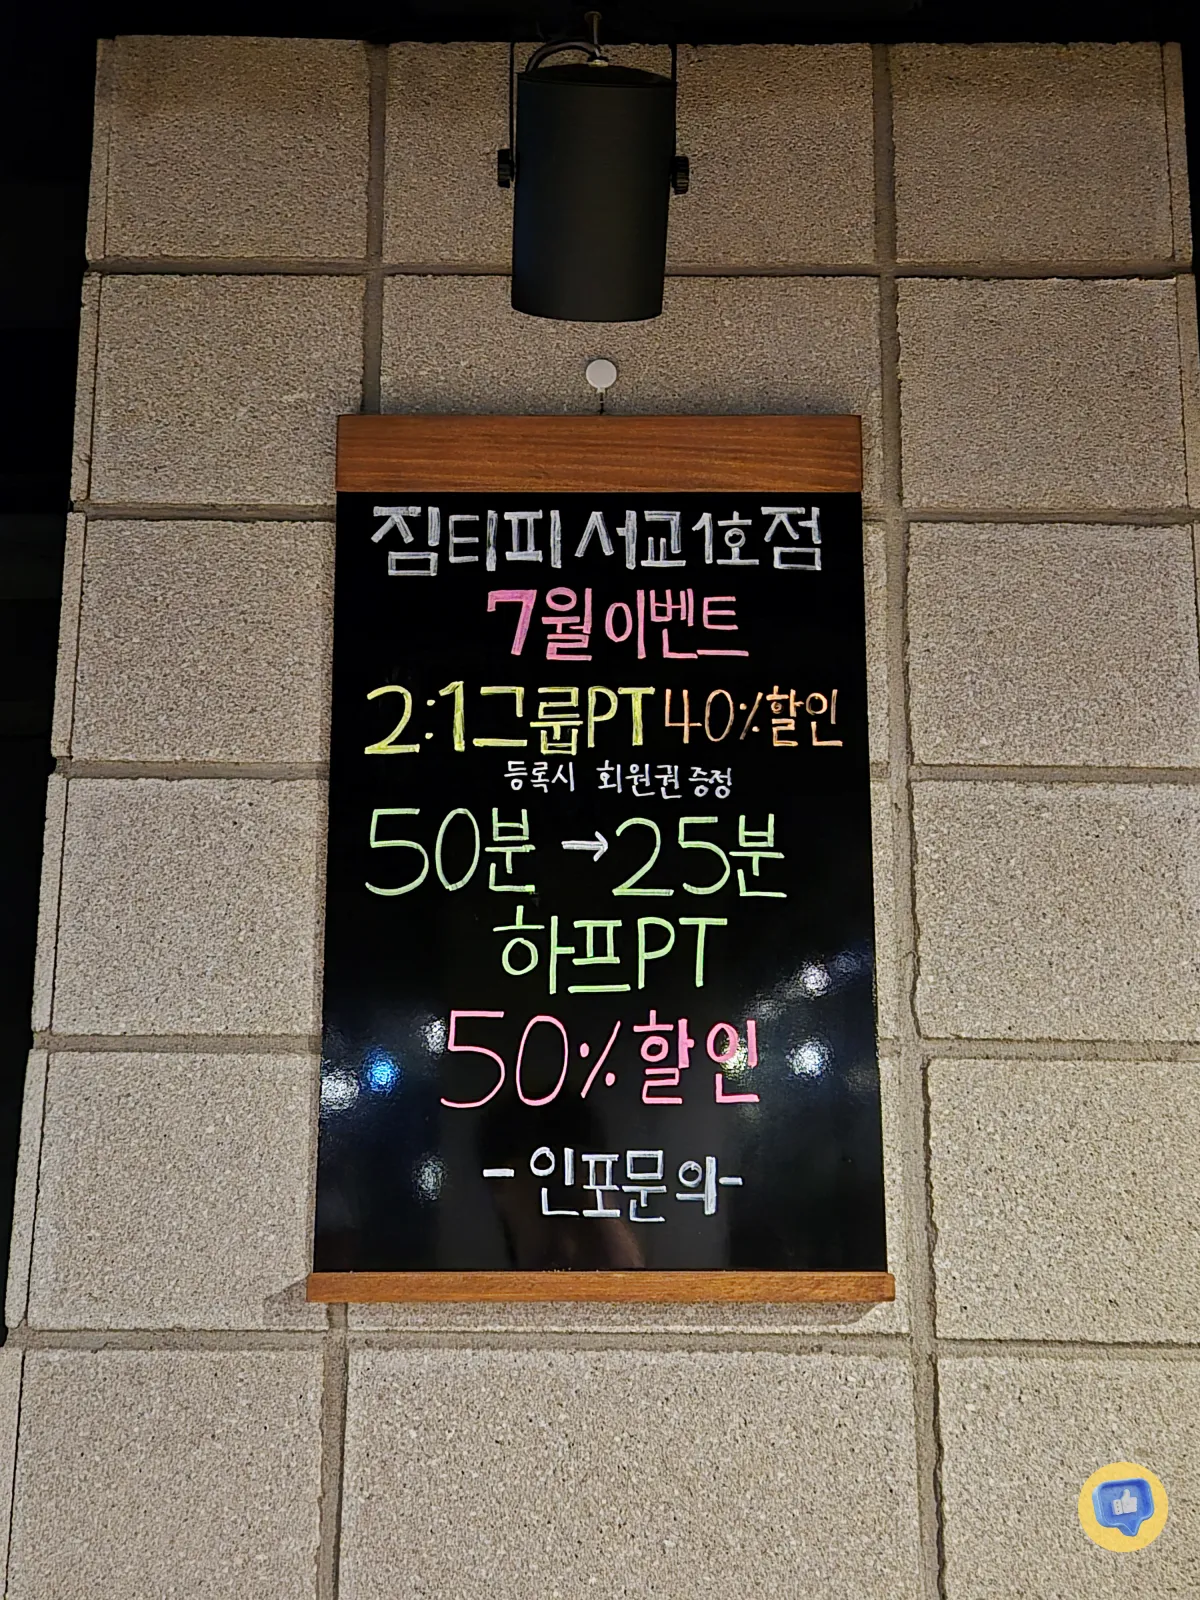 짐티피 서교1호점
7월 이벤트
2:1그룹PT 40%할인
등록시 회원권 증정
50분 →25분
하프PT
50%할인
- 인포문의-